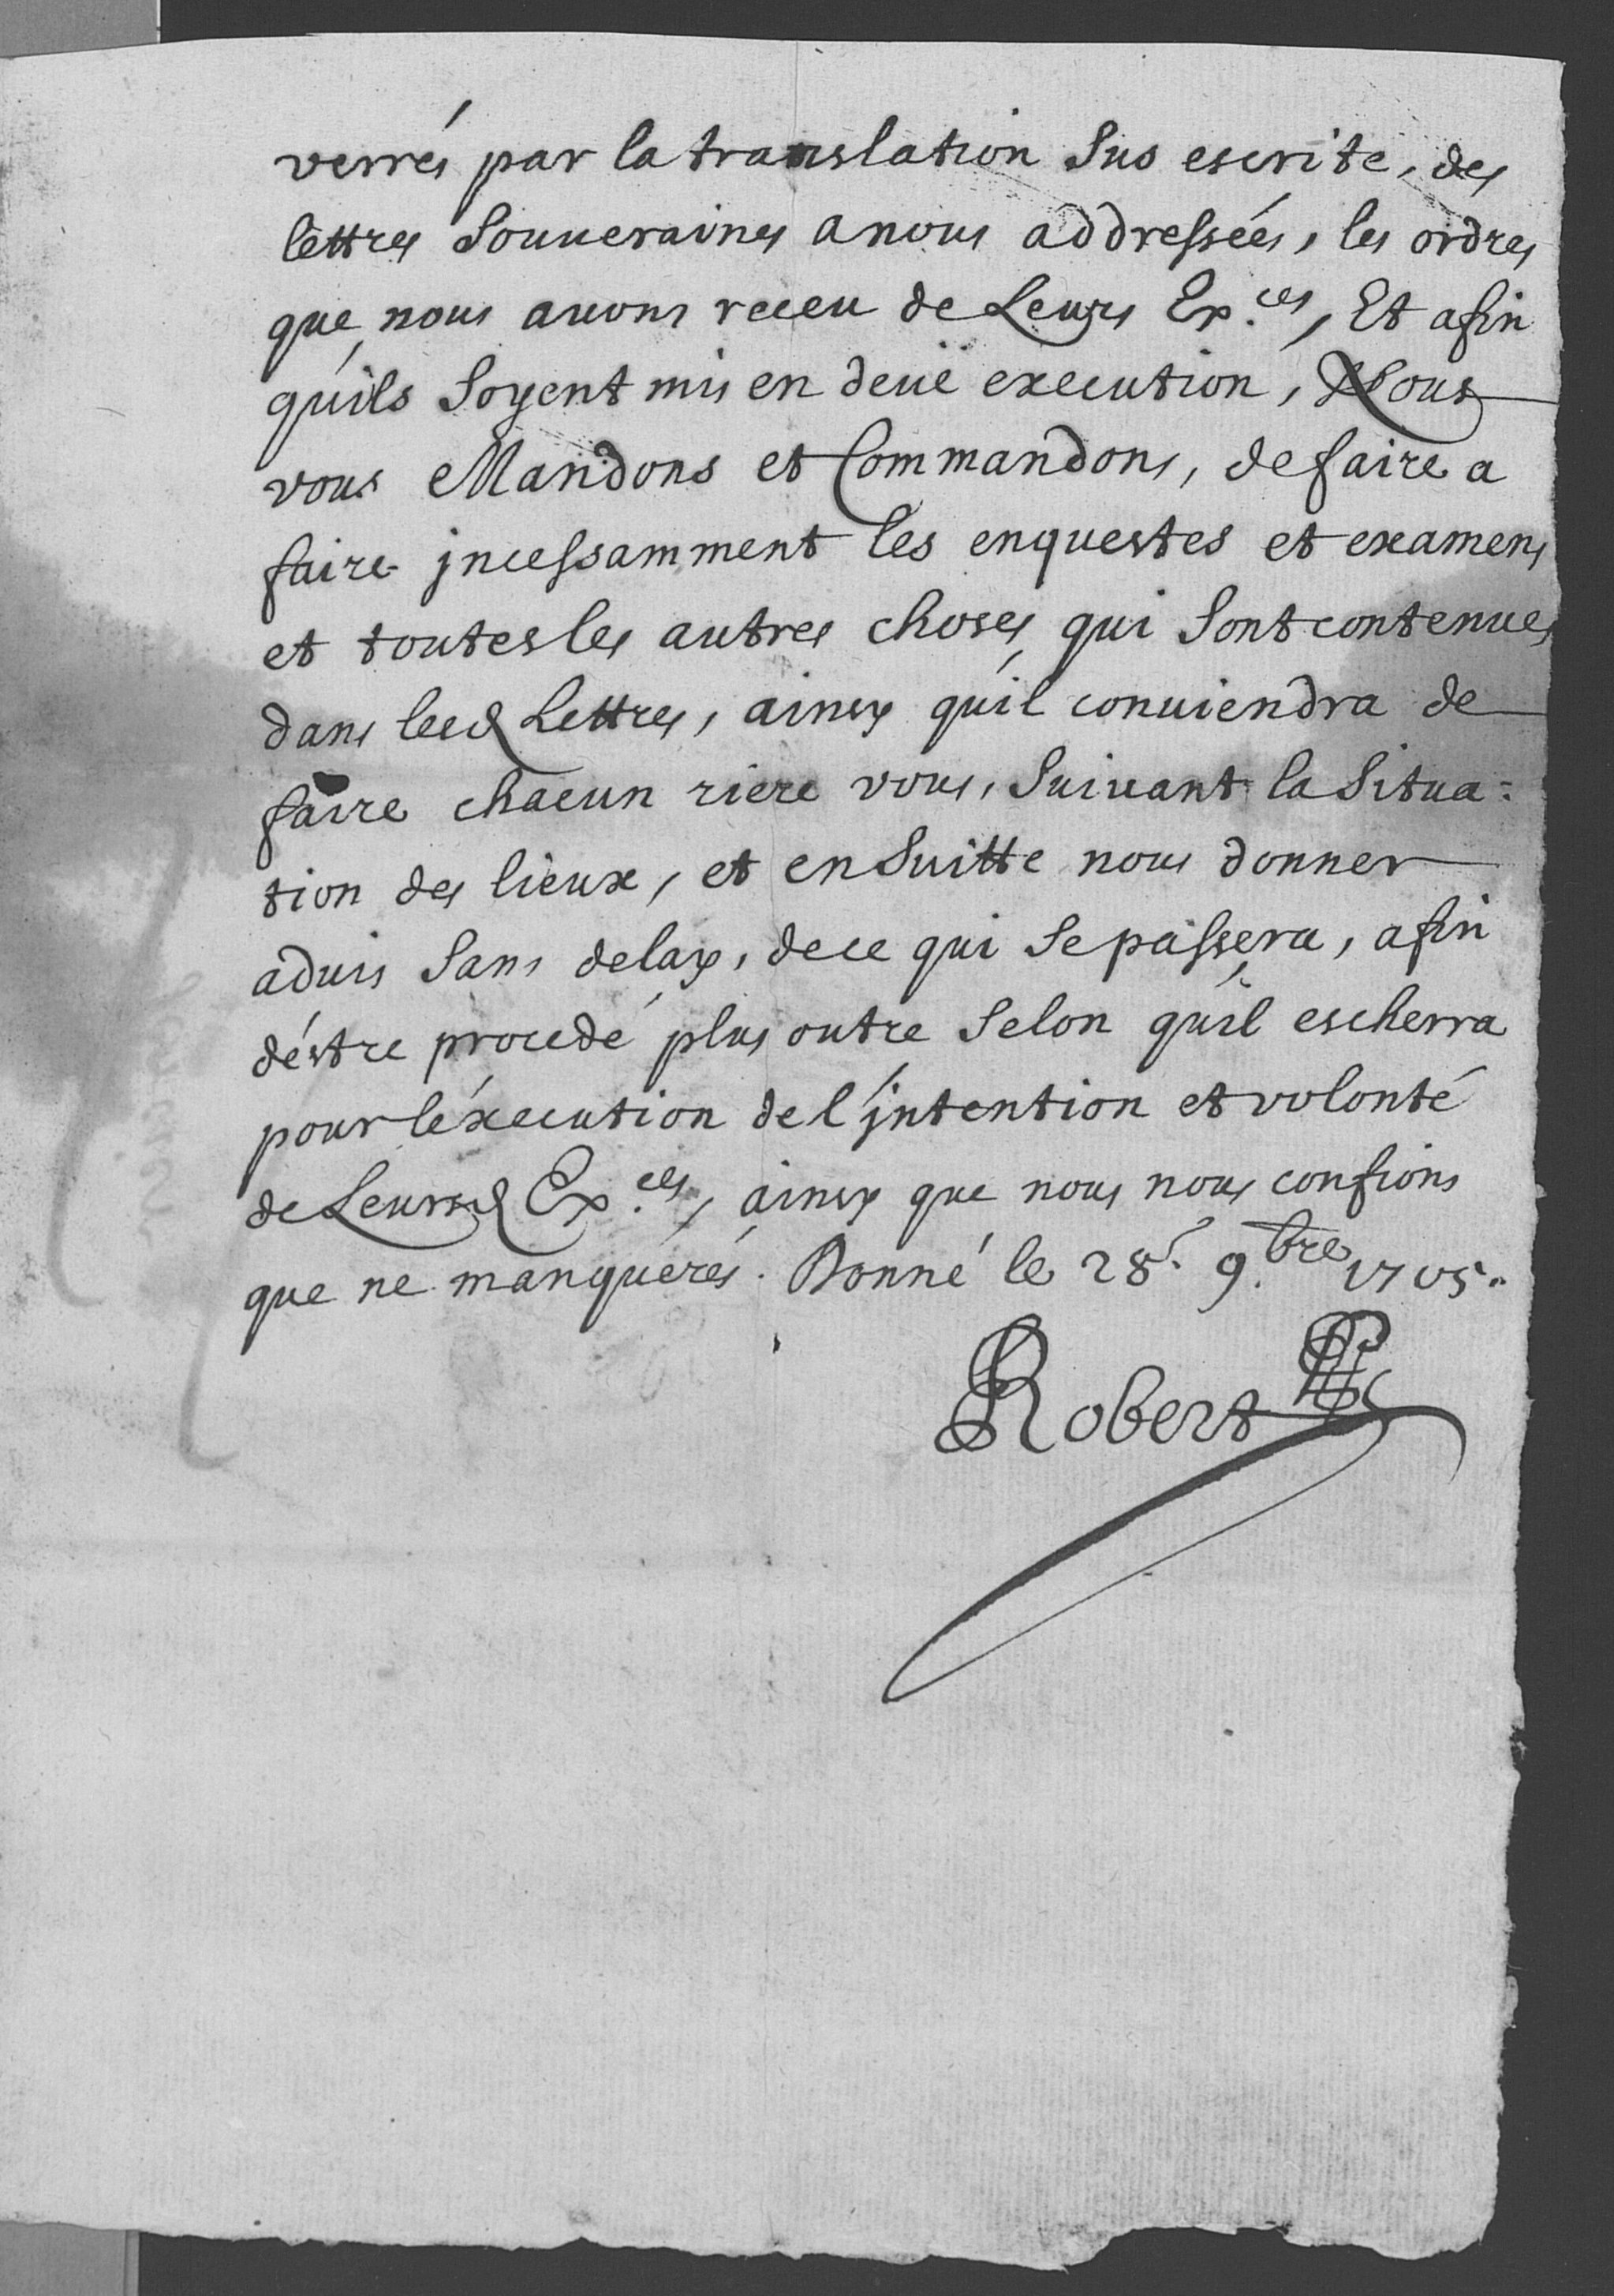 verrés par la translation Sus escrite, des
lettres Souueraines a nous addressées, les ordres
que nous auons receu de Leurs Ex.ces, Et afin
qu'ils Soyent mis en deuë execution, Nous
vous Mandons et Commandons, de faire a
faire jncessamment les enquestes et examens
et toutes les autres choses qui Sont contenues
dans lesd Lettres, ainsy qu'il conuiendra de
faire chacun riere vous, Suiuant la Situa=
tion des lieux, et en Suitte nous donner
aduis Sans delay, de ce qui Se passera, afin
d'éstre procedé plus outre Selon qu'il escherra
pour l'éxecution de l'jntention et volonté
de Leursd Ex.ces, ainsy que nous nous confions
que ne manquerés. Donné le 28.e 9.bre 1705.
Robert